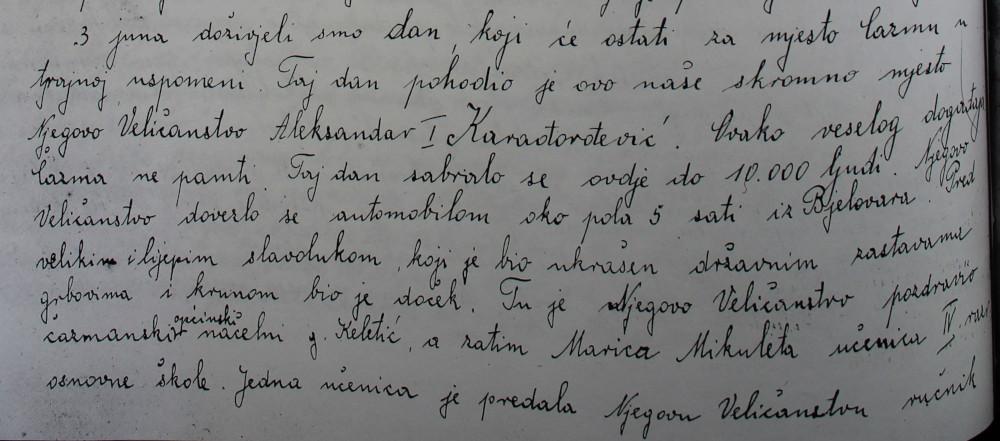 3 juna doživjeli smo dan, koji će ostati za mjesto Čazmu u
trajnoj uspomeni. Taj dan pohodio je ovo naše skromno mjesto
Njegovo Veličanstvo Aleksandar I Karađorđević. Ovako veselog događaja
Čazma ne pamti. Taj dan sabralo se ovdje do 10.000 ljudi. Njegovo
Veličanstvo dovezlo se automobilom oko pola 5 sati iz Bjelovara. Pred
velikim i lijepim slavolukom, koji je bio ukrašen državnim zastavama
grbovima i krunom bio je doček. Tu je Njegovo Veličanstvo pozdravio
čazmanski općinski načelni g. Keletić, a zatim Marica Mikuleta učenica IV. raz
osnovne škole. Jedna učenica je predala Njegovu Veličanstvu ručnik